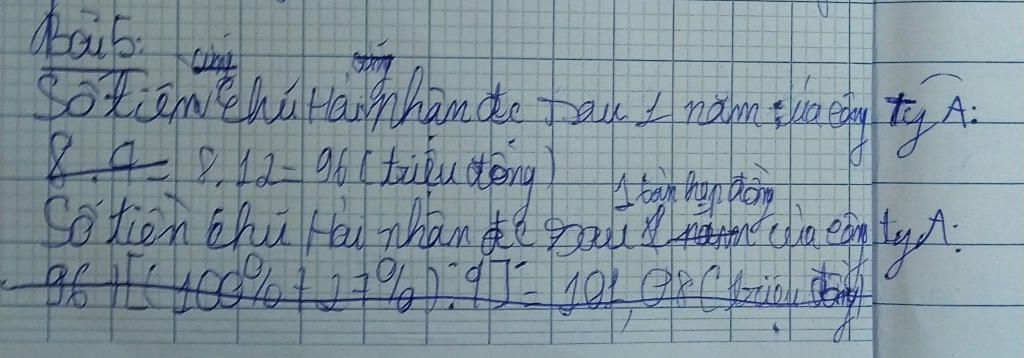 Bài 5:
Số tiền chú Hải nhận đc sau 1 năm của công ty A:
8.12 = 96 (triệu đồng)
1 bản hợp đồng
Số tiền chú Hải nhận đc sau của công ty A:
96 [(100% + 27%) : 9] = 101,98 (triệu đồng)